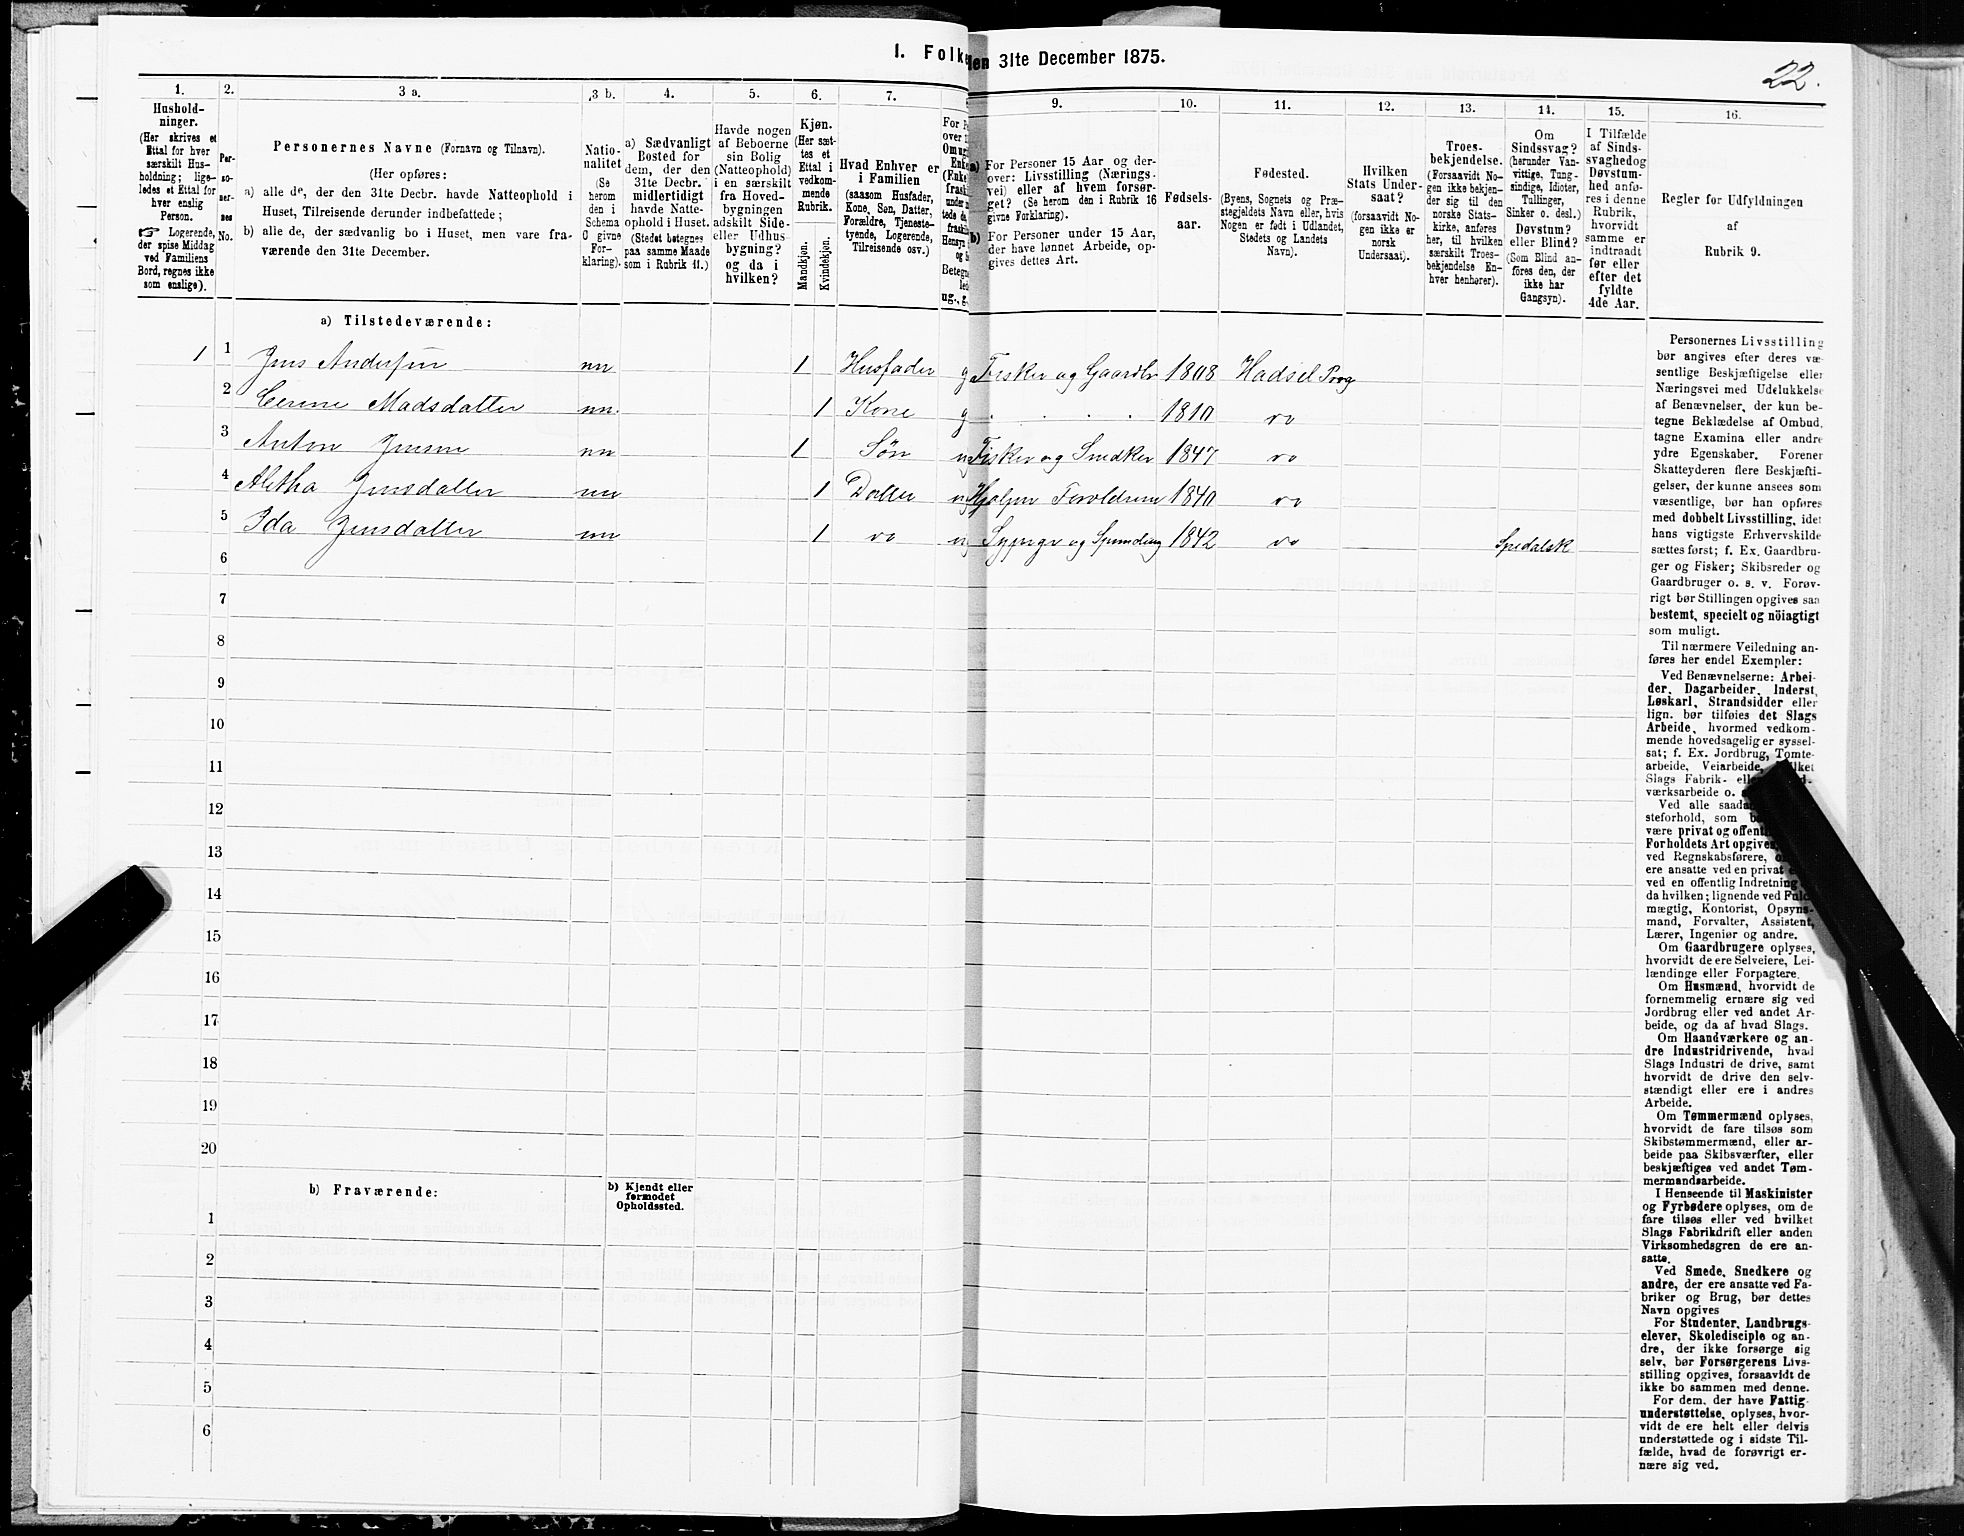 I. Folke
den 31te December 1875.
22.
1.
Hushold-
ninger.
(Her skrives et
Ettal for hver
særskilt Hus-
holdning; lige-
ledes et Ettal for
hver enslig
Person.
☞ Logerende,
der spise Middag
ved Familiens
Bord, regnes ikke
som enslige).
2.
Per-
so-
ner-
nes
No.
3 a.
Personernes Navne (Fornavn og Tilnavn).
(Her opføres:
a) alle de, der den 31te Decbr. havde Natteophold i
Huset, Tilreisende derunder indbefattede;
b) alle de, der sædvanlig bo i Huset, men vare fra-
værende den 31te December.
3 b.
Natio-
nalitet
(Se
herom
den i
Schema
6 givne
For-
klaring).
4.
a) Sædvanligt
Bosted for
dem, der den
31te Decbr.
midlertidigt
havde Natte-
ophold i Huset.
(Stedet betegnes
paa samme Maade
som i Rubrik 11.)
5.
Havde nogen
af Beboerne
sin Bolig
(Natteophold)
i en særskilt
fra Hoved-
bygningen
adskilt Side-
eller Udhus-
bygning?
og da i
hvilken?
6.
Kjøn.
(Her sæt-
tes et
Ettal i
vedkom-
mende
Rubrik.
Mandkjøn.
Kvindekjøn.
7.
Hvad Enhver er
i Familien
(saasom Husfader,
Kone, Søn, Datter,
Forældre, Tjeneste-
tyende, Logerende,
Tilreisende osv.)
9.
a) For Personer 15 Aar og der-
over: Livsstilling (Nærings-
vei) eller af hvem forsør-
get? (Se herom den i Rubrik 16
givne Forklaring).
b) For Personer under 15 Aar,
der have lønnet Arbeide, op-
gives dettes Art.
10.
Fødsels-
aar.
11.
Fødested.
(Byens, Sognets og Præ-
stegjeldets Navn eller, hvis
Nogen er født i Udlandet,
Stedets og Landets
Navn).
12.
Hvilken
Stats Under-
saat?
(forsaavidt No-
gen ikke er
norsk
Undersaat).
13.
Troes-
bekjendelse.
(Forsaavidt No-
gen ikke bekjen-
der sig til den
norske Stats-
kirke, anføres
her, til hvilken
særskilt Troes-
bekjendelse En-
hver henhører).
14.
Om
Sindssvag?
(herunder Van-
vittige, Tung-
sindige, Idioter,
Tullinger,
Sinker o. desl.)
Døvstum?
eller Blind?
(Som Blind an-
føres den, der
ikke har
Gangsyn).
15.
I Tilfælde
af Sinds-
svaghed og
Døvstum-
hed anfø-
res i denne
Rubrik,
hvorvidt
samme er
indtraadt
før eller
efter det
fyldte
4de Aar.
16.
Regler for Udfyldningen
af
Rubrik 9.
a) Tilstedeværende:
1 1 Jens Andersen nn 1 Husfader g Fisker og Gaardbr 1808 Hadsel Prgj
2 Cerine Madsdatter nn. 1 Kone g . . . . 1810 vo
3 Anton Jensen nn 1 Søn ug Fisker og Snedker 1847 vo
4 Alitha Jensdatter nn 1 Datter ug Hjælper Foreldrene 1840 vo
5 Ida Jensdatter nn 1 vo ug Sypige og Spinding 1842 vo Spedalsk
6
7
8
9
10
11
12
13
14
15
16
17
18
19
20
b) Fraværende:
b) Kjendt eller
formodet
Opholdssted.
1
2
3
4
5
6
Personernes Livsstilling
bør angives efter deres væ-
sentlige Beskjæftigelse eller
Næringsvei med Udelukkelse
af Benævnelser, der kun be-
tegne Beklædelse af Ombud,
tagne Examina eller andre
ydre Egenskaber. Forener
Skatteyderen flere Beskjæfti-
gelser, der kunne ansees som
væsentlige, bør han opføres
med dobbelt Livsstilling, idet
hans vigtigste Erhvervskilde
sættes først; f. Ex. Gaardbru-
ger og Fisker; Skibsreder og
Gaardbruger o. s. v. Forøv-
rigt bør Stillingen opgives saa
bestemt, specielt og nöiagtigt
som muligt.
Til nærmere Veiledning an-
føres her endel Exempler:
Ved Benævnelserne: Arbei-
der, Dagarbeider, Inderst,
Løskarl, Strandsidder eller
lign. bør tilføies det Slags
Arbeide, hvormed vedkom-
mende hovedsagelig er syssel-
sat; f. Ex. Jordbrug, Tomte-
arbeide, Veiarbeide,
Slags Fabrik-
værksarbeide o.
Ved alle
steforhold, som
være privat og
Forholdets Art
ved Regnskabsførere,
ere ansatte ved en privat
ved en offentlig Indretning
da hvilken; lignende ved
mægtig, Kontorist, Opsyns-
mand, Forvalter, Assistent,
Lærer, Ingeniør og andre.
Om Gaardbrugere oplyses,
hvorvidt de ere Selveiere, Lei-
lændinge eller Forpagtere.
Om Husmænd, hvorvidt de
fornemmelig ernære sig ved
Jordbrug eller ved andet Ar-
beide, og da af hvad Slags.
Om Haandværkere og an-
dre Industridrivende, hvad
Slags Industri de drive, samt
hvorvidt de drive den selv-
stændigt eller ere i andres
Arbeide.
Om Tømmermænd oplyses,
hvorvidt de fare tilsøs som
Skibstømmermænd, eller ar-
beide paa Skibsværfter, eller
beskjæftiges ved andet Tøm-
mermandsarbeide.
I Henseende til Maskinister
og Fyrbødere oplyses, om de
fare tilsøs eller ved hvilket
Slags Fabrikdrift eller anden
Virksomhedsgren de ere an-
satte.
Ved Smede, Snedkere og
andre, der ere ansatte ved Fa-
briker og Brug, bør dettes
Navn opgives
For Studenter, Landbrugs-
elever, Skoledisciple og an-
dre, der ikke forsørge sig
selv, bør Forsørgerens Livs-
stilling opgives, forsaavidt de
ikke bo sammen med denne.
For dem, der have Fattig-
understøttelse, oplyses, hvor-
vidt de ere helt eller delvis
understøttede og i sidste Til-
fælde, hvad de forøvrigt er-
nære sig ved.